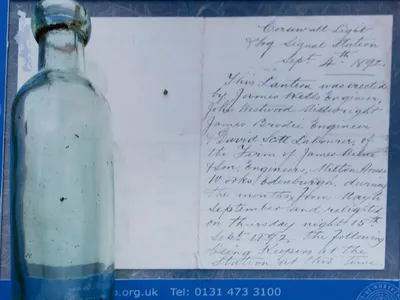 Corsewall Light
& Fog Signal Station
Sept 4th 1892
This Lantern was erected
by James Wells Engineer,
John Westwood Millwright
James Brodie Engineer
& David Scott Labourer, of
the Firm of James Milne
& Son Engineers, Milton House
Works, Edinburgh, during
the months from May to
September and relighted
on Thursday night 15th
Sept 1892. the following
being Keepers at the
Station at this time
.org.uk Tel: 0131 473 3100